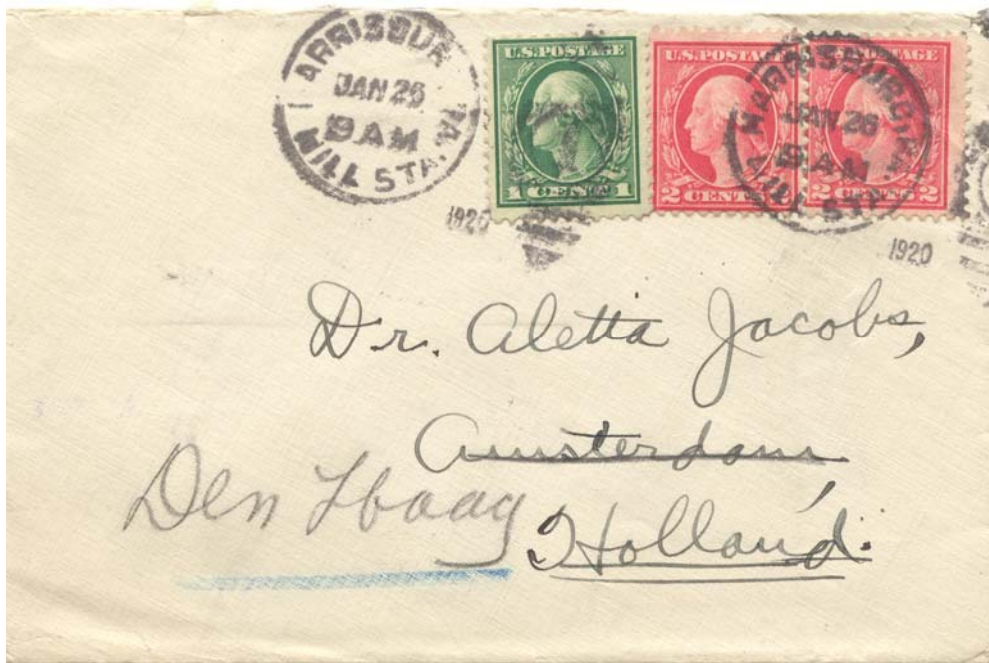 ARRISBUR PA.
JAN 26
9 AM
HILL STA.
1920
U.S. POSTAGE
1 CENT 1
U.S. POSTAGE
2 CENTS
POSTAGE
2 CENTS 2
HARRISBURG, PA.
JAN 26
9 AM
HILL STA.
1920
Dr. Aletta Jacobs,
Amsterdam,
Den Haag
Holland.